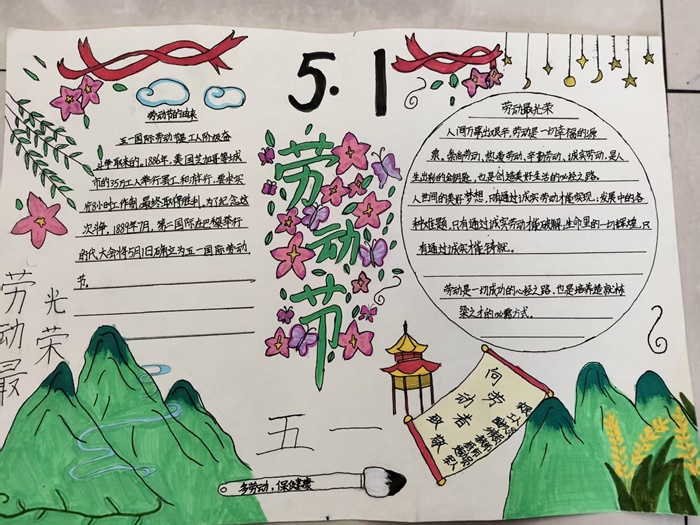 5.1
劳动节
劳动节的由来
五一国际劳动节是工人阶级奋
斗争取来的。1886年,美国芝加哥等城
市的35万工人举行罢工和游行,要求实
行8小时工作制,最终取得胜利,为了纪念这
次 1889年7月,第二国际在巴黎举行
的代大会将5月1日确立为五一国际劳动
节。
劳动最光荣
人间万事出艰辛,劳动是一切幸福的源
泉。崇尚劳动,热爱劳动,辛勤劳动,诚实劳动,是人
生出彩的金钥匙,也是创造美好生活的必经之路。
人世间的美好梦想,只有通过诚实劳动才能实现;发展中的各
种难题,只有通过诚实劳动才能破解;生命里的一切辉煌,只
有通过诚实才能铸就。
劳动是一切成功的必经之路,也是培养造就栋
梁之才的必需方式。
劳动最
光荣
五一
向劳
动者
致敬
多劳动,保健康